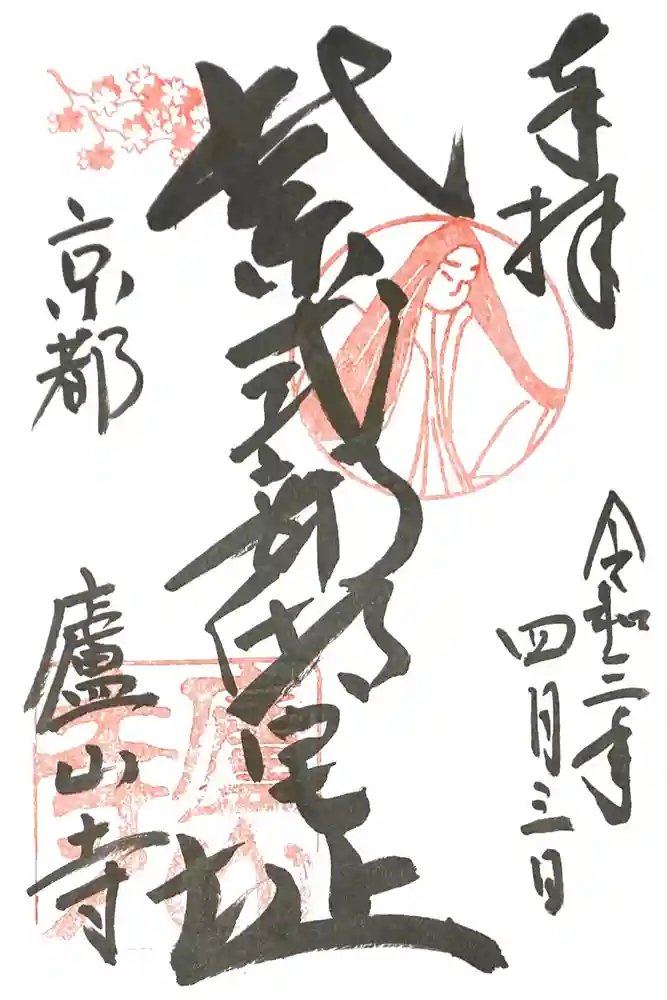 奉拝
令和三年
四月三日
紫式部邸宅址
京都
廬山寺